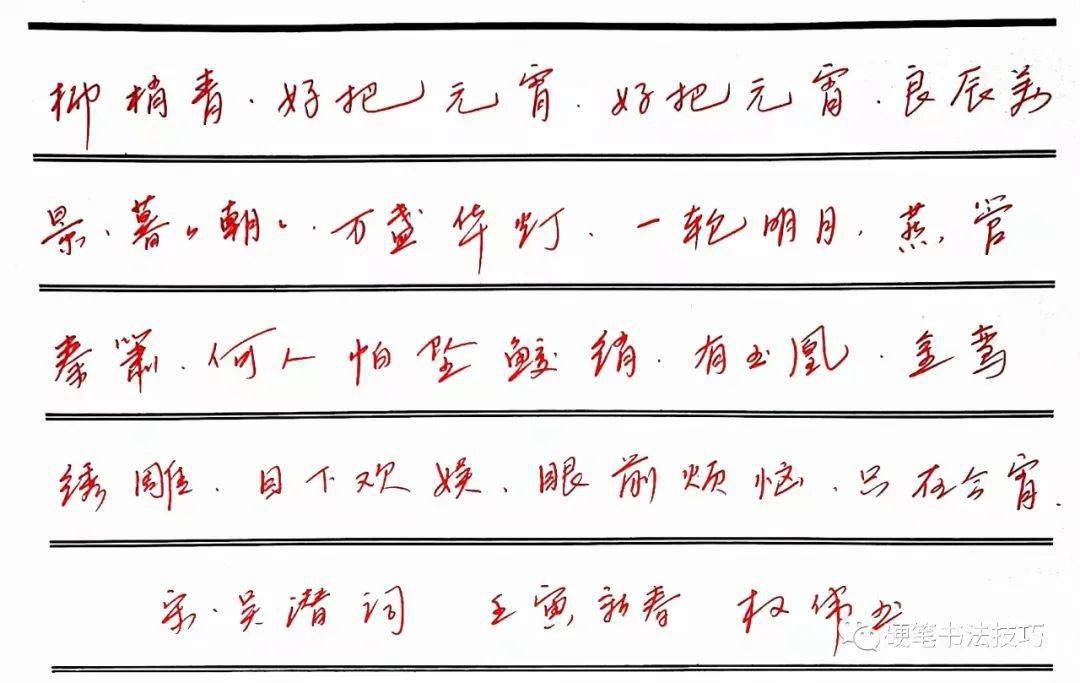 柳梢青·好把元宵.好把元宵.良辰美
景.暮々朝々.万盏华灯.一轮明月.燕管
秦箫.何人怕坠鲛绡.有玉凰.金鸾
绣雕.目下欢娱.眼前烦恼.只在今宵.
宋·吴潜词 壬寅新春 权伟书
硬笔书法技巧